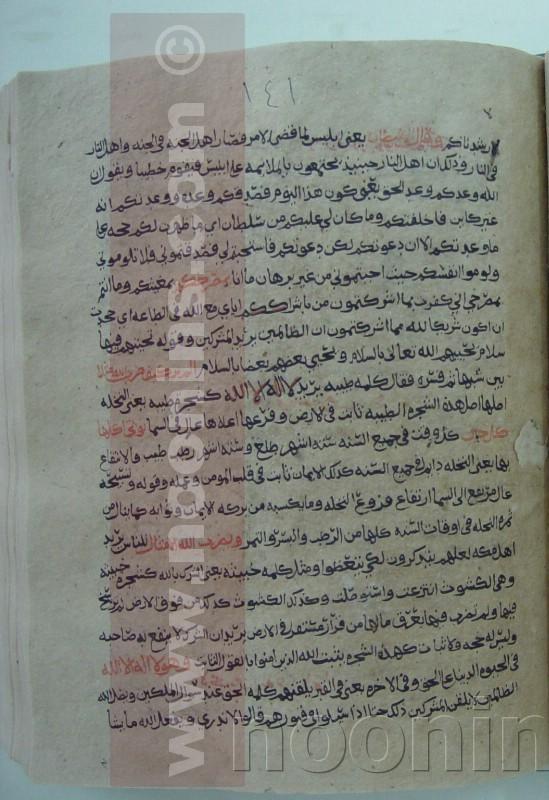 ١٤١
لارشدناكم وقال الشيطان يعني ابليس لما قضي الامر فصار اهل الجنه في الجنه واهل النار
في النار وذلك ان اهل النار حينئذ يجتمعون باللائمه على ابليس فيقوم خطيبا ويقول ان
الله وعدكم وعد الحق يعني كون هذا اليوم فصدقكم وعده ووعدتكم انه
غير كاين فاخلفتكم وما كان لي عليكم من سلطان اي ما ظهرت لكم حجه على
ما وعدتكم الا ان دعوتكم لكن دعوتكم فاستجبتم لي فصدقتموني فلا تلوموني
ولوموا انفسكم حيث اجبتموني من غير برهان ما انا بمصرخكم بمغيثكم وما انتم
بمصرخي اني كفرت بما اشركتمون من باشراككم اياي مع الله في الطاعه اي جحدت
ان اكون شريكا لله مما اشركتمون ان الظالمين يريد المشركين وقوله تحيتهم فيها
سلام يحييهم الله تعالى بالسلام ويحيي بعضهم بعضا بالسلام الم تر كيف ضرب الله مثلا
بين شبها ثم فسره فقال كلمه طيبه يريد لا اله الا الله كشجره طيبه يعني النخله
اصلها اصل هذه الشجره الطيبه ثابت في الارض وفرعها اعلاها عال في السما توتي اكلها
كل حين كل وقت في جميع السنه سته اشهر طلع وسته اشهر رطب طيب والانتفاع
بها يعني النخله دايم في جميع السنه كذلك الايمان ثابت في قلب المومن وعمله وقوله وتسبيحه
عال مرتفع الى السما ارتفاع فروع النخله وما يكسبه من بركه الايمان وثوابه كما ينال من
ثمره النخله في اوقات السنه كلها من الرطب والبسر والتمر ويضرب الله الامثال للناس يريد
اهل مكه لعلهم يتذكرون لكي يتعظوا ومثل كلمه خبيثه يعني الشرك بالله كشجره خبيثه
وهي الكشوث اجتثت انتزعت واستوصلت وكذلك الكشوث كذلك من فوق الارض لم يرسخ
فيها ولم يضرب فيها بعرق ما لها من قرار مستقر في الارض يريد ان الشرك لا ينتفع به صاحبه
وليس له حجه ولا ثبات كهذه الشجره يثبت الله الذين امنوا بالقول الثابت وهو لا اله الا الله
في الحيوه الدنيا على الحق وفي الاخره يعني في القبر يلقنهم كلمه الحق عند سوال الملكين ويضل الله
الظالمين لا يلقن المشركين ذلك حتى اذا سئلوا في قبورهم قالوا لا ندري ويفعل الله ما يشا
© www.nbonline.com
noonin